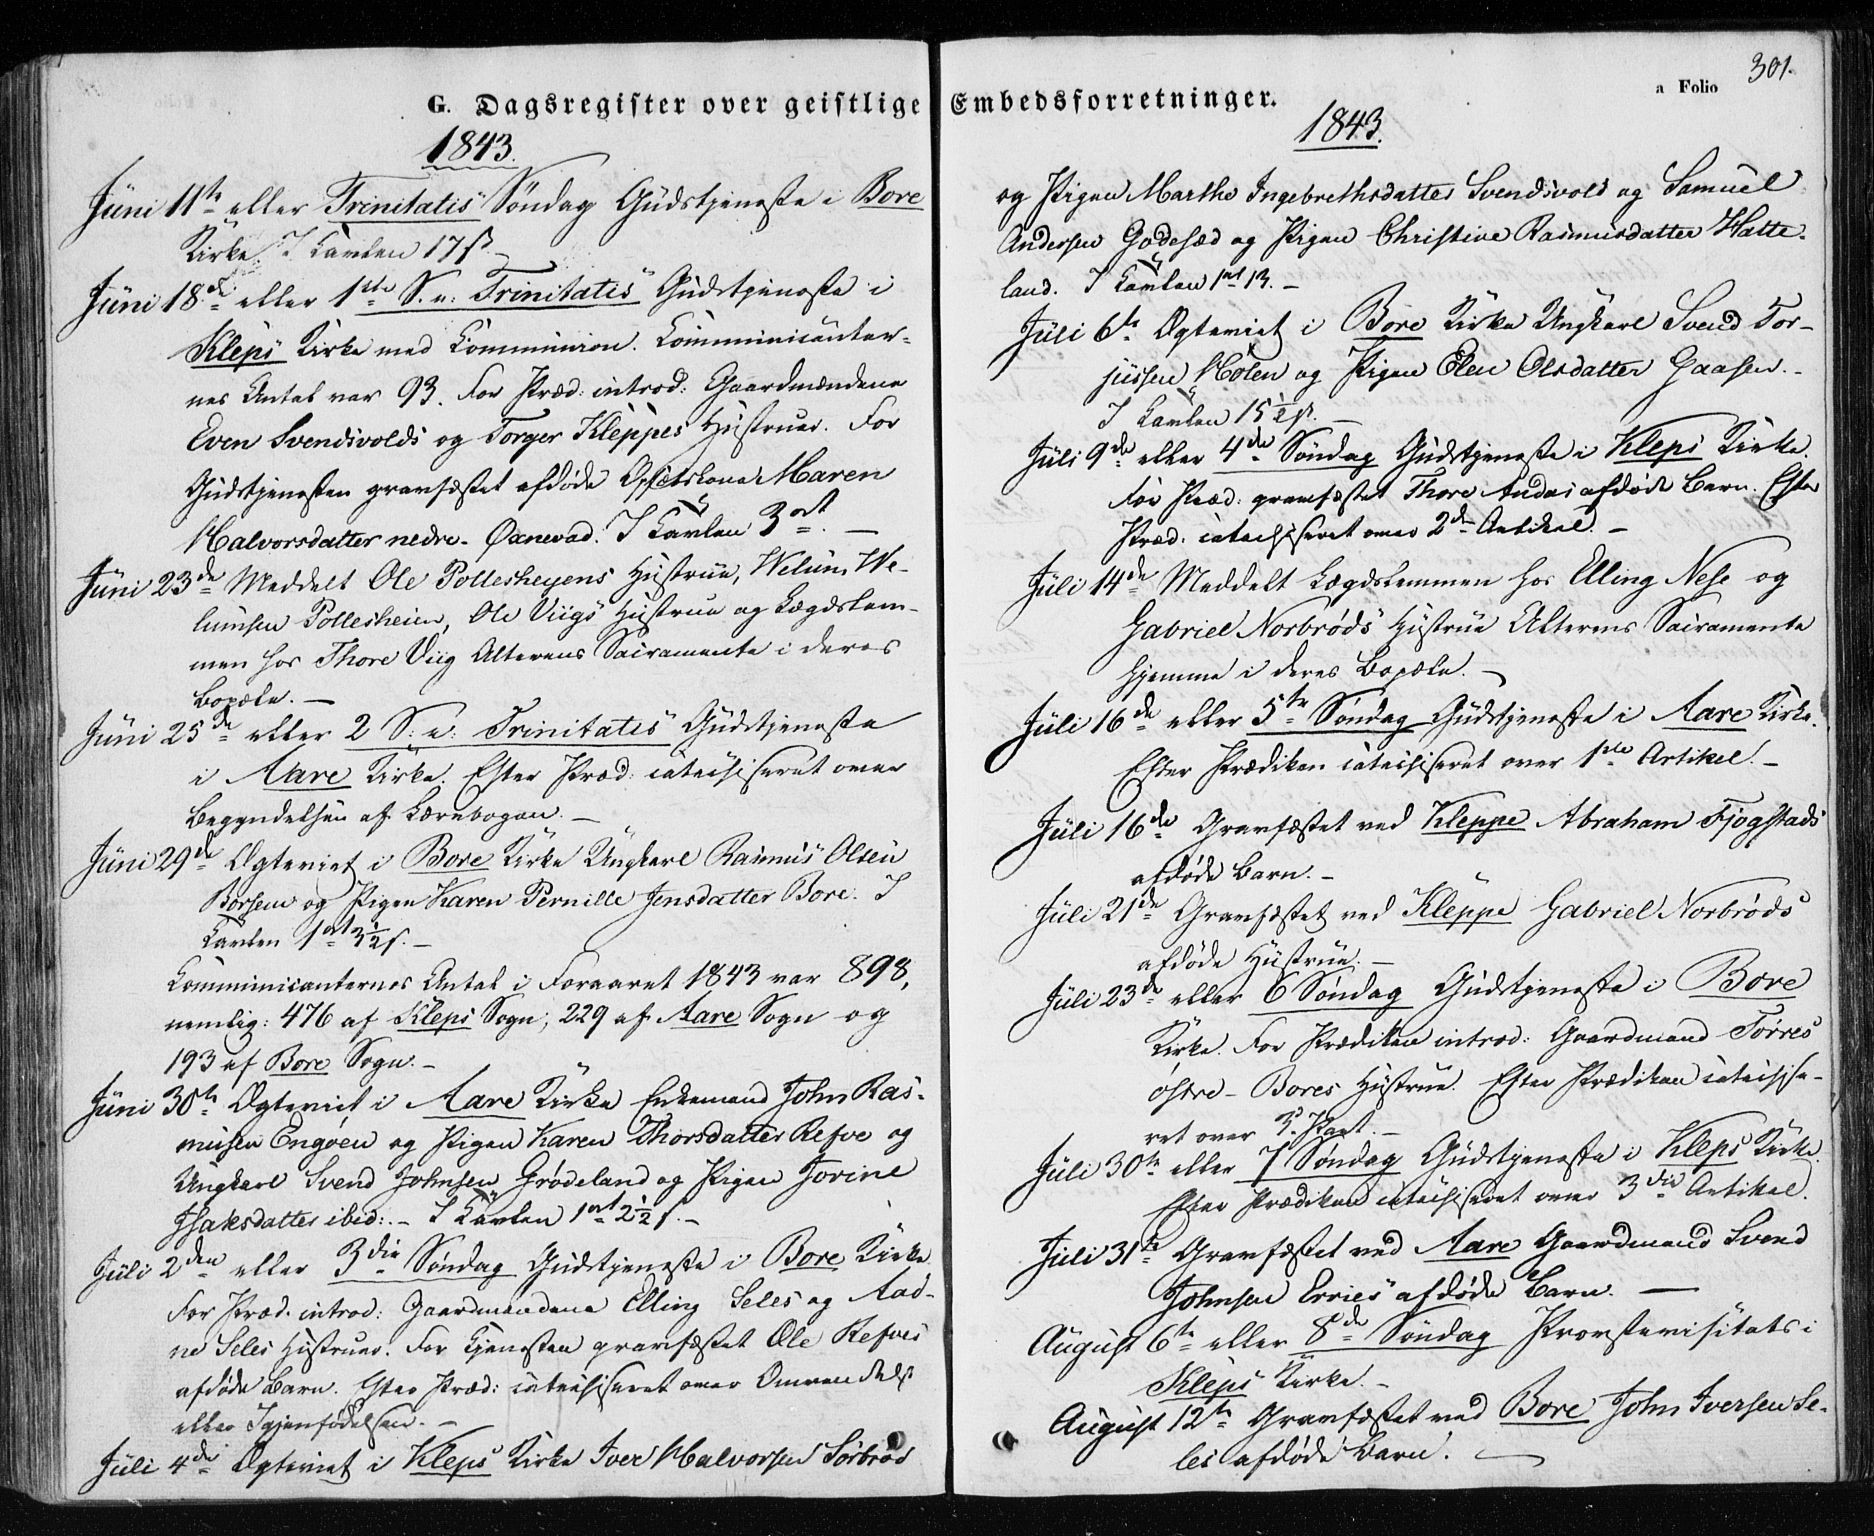 G. Dagsregister over geistlige
1843.
Juni 11te eller Trinitatis Søndag Gudstjeneste i Bore
Kirke. I Tavlen 17 ß.
Juni 18de eller 1ste S. e. Trinitatis Gudstjeneste i
Kleps Kirke med Communion. Communicanter-
nes Antal var 93. For Præd: introd: Gaardmændene
Even Svendsvolds og Torger Kleppes Hustruer. For
Gudstjenesten gravfæstet afdøde Maren
Halvorsdatter nedre- Øxnevad. I Tavlen 3 ort. —
Juni 23de Meddelt Ole Pollesheyens Hustrue, Welum We-
lumsen Pollesheien, Ole Viigs Hustrue og Lægdslem-
men hos Thore Viig Alterens Sacramente i deres
Bopæle. —
Juni 25de eller 2 S. e. Trinitatis Gudstjeneste
i Aare Kirke. Efter Præd: catechiseret over
Begyndelsen af Lærebogen. —
Juni 29de Ægteviet i Bore Kirke Ungkarl Rasmus Olsen
Borsem og Pigen Karen Pernille Jensdatter Bore. I
Tavlen 1 ort 3½ ß. —
Communicanternes Antal i Foraaret 1843 var 898,
nemlig: 476 af Kleps Sogn; 229 af Aare Sogn og
193 af Bore Sogn. —
Juni 30te Ægteviet i Aare Kirke Enkemand John Ras-
musen Engøen og Pigen Karen Thorsdatter Refve og
Ungkarl Svend Johnsen Grødeland og Pigen Jorine
Isaksdatter ibid:. — I Tavlen 1 ort 2½ ß. —
Juli 2den eller 3die Søndag Gudstjeneste i Bore Kirke
For Præd. introd: Gaardmændene Elling Seles og Aad-
ne Seles Hustruer. For Tjenesten gravfæstet Ole Refves
afdøde Barn. Efter Præd: catechiseret over Omvendelse
eller Igjenfødelsen. —
Juli 4de Ægteviet i Kleps Kirke Iver Halvorsen Sørbrød
301.
a Folio
Embedsforretninger.
1843.
og Pigen Marthe Ingebrethsdatter Svendsvold og Samuel
Andersen Godesæd og Pigen Christine Rasmusdatter Hatte-
land. I Tavlen 1 ort 13. —
Juli 6te Ægteviet i Bore Kirke Ungkarl Svend Tor-
jussen Holen og Pigen Elen Olsdatter Gaasen. -
I Tavlen 15½ ß. —
Juli 9de eller 4de Søndag Gudstjeneste i Kleps Kirke.
For Præd: gravfæstet Thore Andas afdøde Barn. Efter
Præd: catechiseret over 2den Artikel. —
Juli 14de Meddelt Lægdslemmen hos Elling Nese og
Gabriel Norbrøds Hustrue Alterens Sacramente
hjemme i deres Bopæle. —
Juli 16de eller 5te Søndag Gudstjeneste i Aare Kirke.
Efter Prædiken catechiseret over 1ste Artikel. —
Juli 16de Gravfæstet ved Kleppe Abraham Fjogstads
afdøde Barn. —
Juli 21de Gravfæstet ved Kleppe Gabriel Norbrøds
afdøde Hustrue. —
Juli 23de eller 6 Søndag Gudstjeneste i Bore
Kirke. For Prædiken introd: Gaardmand Tørres
østre- Bores Hustrue. Efter Prædiken catechise-
ret over 3. Part. —
Juli 30te eller 7 Søndag Gudstjeneste i Kleps Kirke.
Efter Prædiken catechiseret over 3die Artikel.
Juli 31te Gravfæstet ved Aare Gaardmand Svend
Johnsen Erries afdøde Barn. —
August 6te eller 8de Søndag Provstevisitats i
Kleps Kirke. —
August 12te Gravfæstet ved Bore John Iversen Se-
les afdøde Barn. —